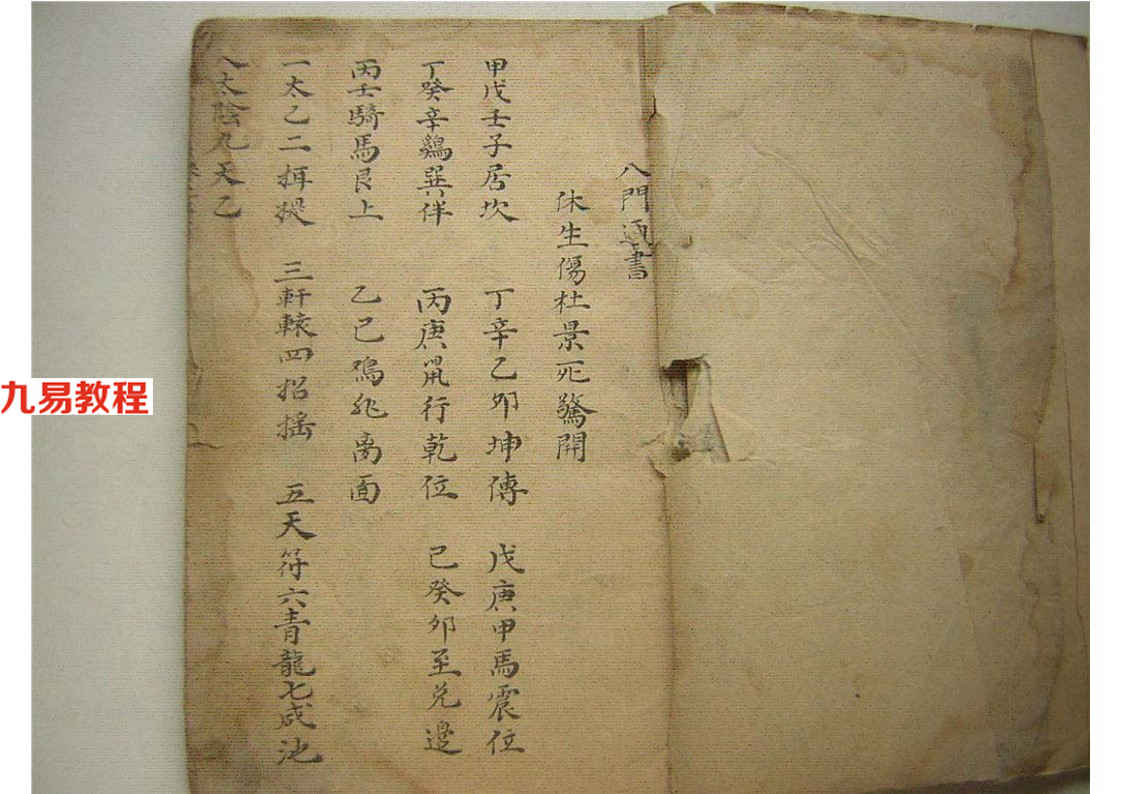 八門通書
休生傷杜景死驚開
甲戊壬子居坎 丁辛乙卯坤傳 戊庚甲馬震位
丁癸辛鷄巽伴 丙庚鼠行乾位 己癸卯至兌邊
丙壬騎馬艮上 乙己鳮飛离面
一太乙二 三軒轅四招摇 五天符六青龍七咸池
八太陰九天乙
九易教程